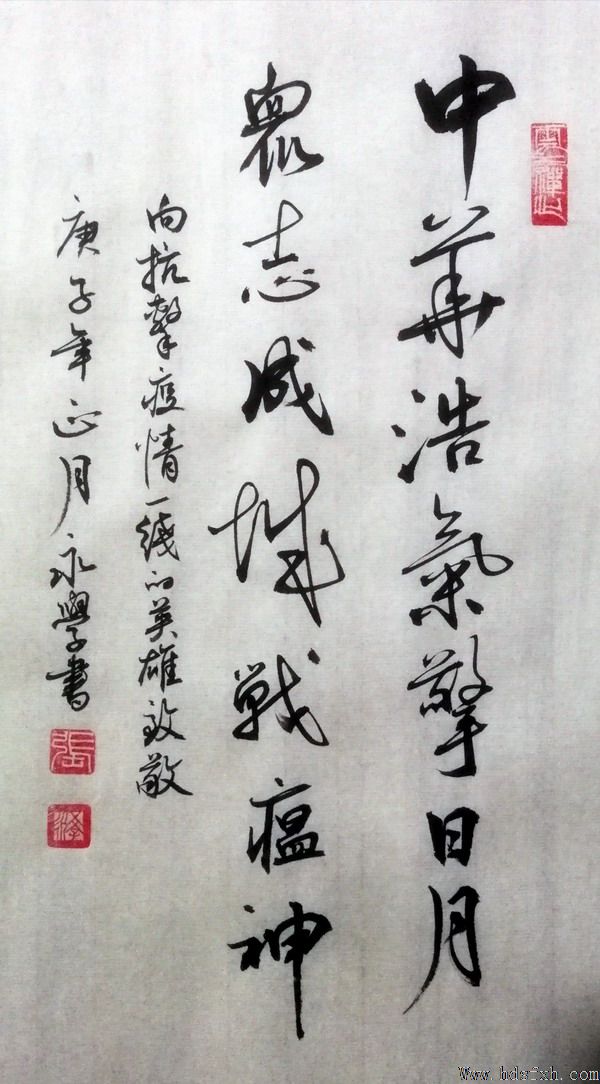 中華浩氣擎日月
衆志成城戰瘟神
向抗擊疫情一綫的英雄致敬
庚子年正月永學書
張
Www.hdsfxh.com